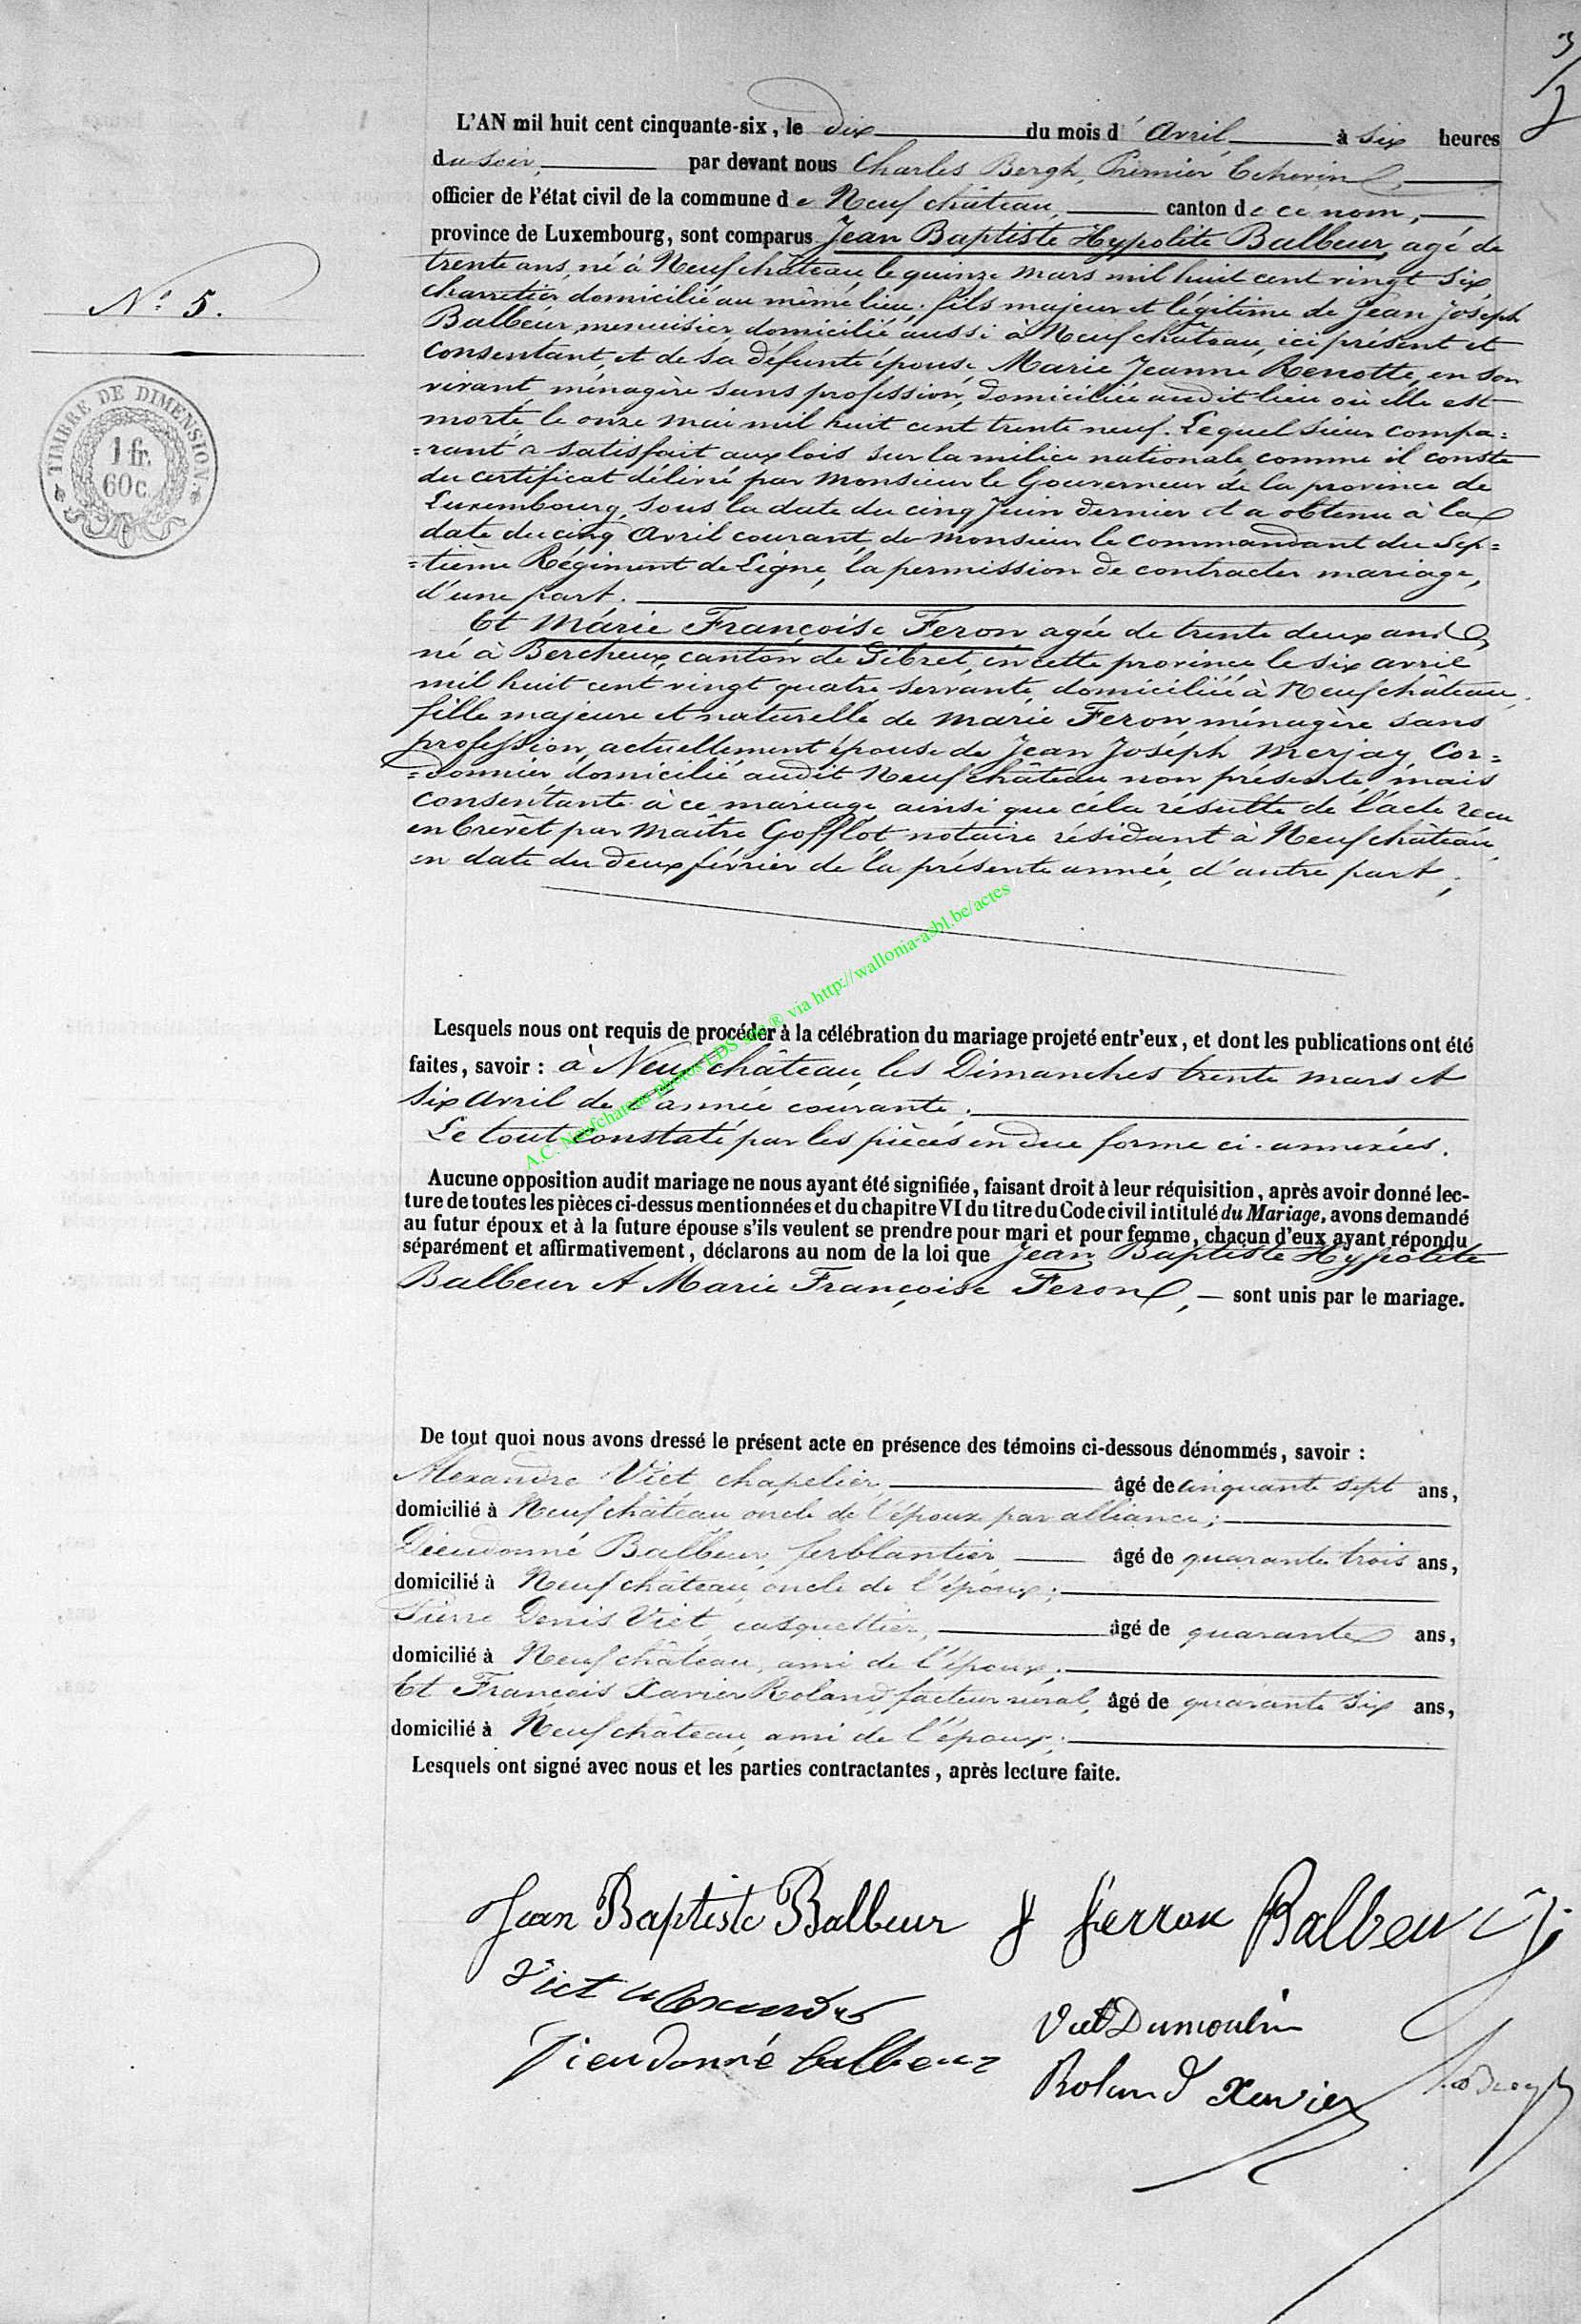 3/2
L'AN mil huit cent cinquante-six, le dix du mois d'Avril à six heures
du soir, par devant nous Charles Bergh, Premier Echevin,
officier de l'état civil de la commune de Neufchâteau, canton de ce nom,
province de Luxembourg, sont comparus Jean Baptiste Hypolite Balbeur, agé de
trente ans, né à Neufchâteau, le quinze mars mil huit cent vingt six,
charretier, domicilié au même lieu, fils majeur et légitime de Jean Joseph
Balbeur, menuisier, domicilié aussi à Neufchâteau, ici présent et
N° 5.
consentant, et de sa défunte épouse, Marie Jeanne Renotte, en son
vivant ménagère sans profession, domiciliée audit lieu où elle est
morte le onze mai mil huit cent trente neuf. Lequel sieur compa=
=rant a satisfait aux lois sur la milice nationale comme il conste
du certificat délivré par Monsieur le Gouverneur de la province de
Luxembourg, sous la date du cinq Juin dernier et a obtenu à la
date du cinq Avril courant, de Monsieur le commandant du Sep=
=tième Régiment de Ligne, la permission de contracter mariage,
d'une part.
TIMBRE DE DIMENSION.
1 fr.
60c
Et Marie Françoise Feron agée de trente deux ans,
né à Bercheux, canton de Sibret, en cette province le six avril
mil huit cent vingt quatre, servante, domiciliée à Neufchâteau,
fille majeure et naturelle de Marie Feron ménagère sans
profession, actuellement épouse de Jean Joseph Merjay, Cor=
=donnier, domicilié audit Neufchâteau non présente, mais
consentante à ce mariage ainsi que cela résulte de l'acte reçu
en brevet par Maître Gofflot notaire résidant à Neufchâteau,
en date du deux février de la présente année, d'autre part,
Lesquels nous ont requis de procéder à la célébration du mariage projeté entr'eux, et dont les publications ont été
faites, savoir : à Neufchâteau, les Dimanches trente mars et
six avril de l'année courante.
Le tout constaté par les pièces en due forme ci-annexées.
A.C. Neufchateau photos LDS sur ® via http://wallonia-asbl.be/actes
Aucune opposition audit mariage ne nous ayant été signifiée, faisant droit à leur réquisition, après avoir donné lec-
ture de toutes les pièces ci-dessus mentionnées et du chapitre VI du titre du Code civil intitulé du Mariage, avons demandé
au futur époux et à la future épouse s'ils veulent se prendre pour mari et pour femme, chacun d'eux ayant répondu
séparément et affirmativement, déclarons au nom de la loi que Jean Baptiste Hypolite
Balbeur et Marie Françoise Feron, sont unis par le mariage.
De tout quoi nous avons dressé le présent acte en présence des témoins ci-dessous dénommés, savoir :
Alexandre Viet, chapelier âgé de cinquante sept ans,
domicilié à Neufchâteau oncle de l'époux par alliance;
Dieudonné Balbeur, ferblantier âgé de quarante trois ans,
domicilié à Neufchâteau, oncle de l'époux;
Pierre Denis Viet, casquettier, âgé de quarante ans,
domicilié à Neufchâteau, ami de l'époux;
Et François Xavier Roland, facteur rural, âgé de quarante six ans,
domicilié à Neufchâteau, ami de l'époux;
Lesquels ont signé avec nous et les parties contractantes, après lecture faite.
Jean Baptiste Balbeur f ferron Balbeur
Viet alexandre
Viet Dumoulin
Dieudonné balbeur
Roland Xavier